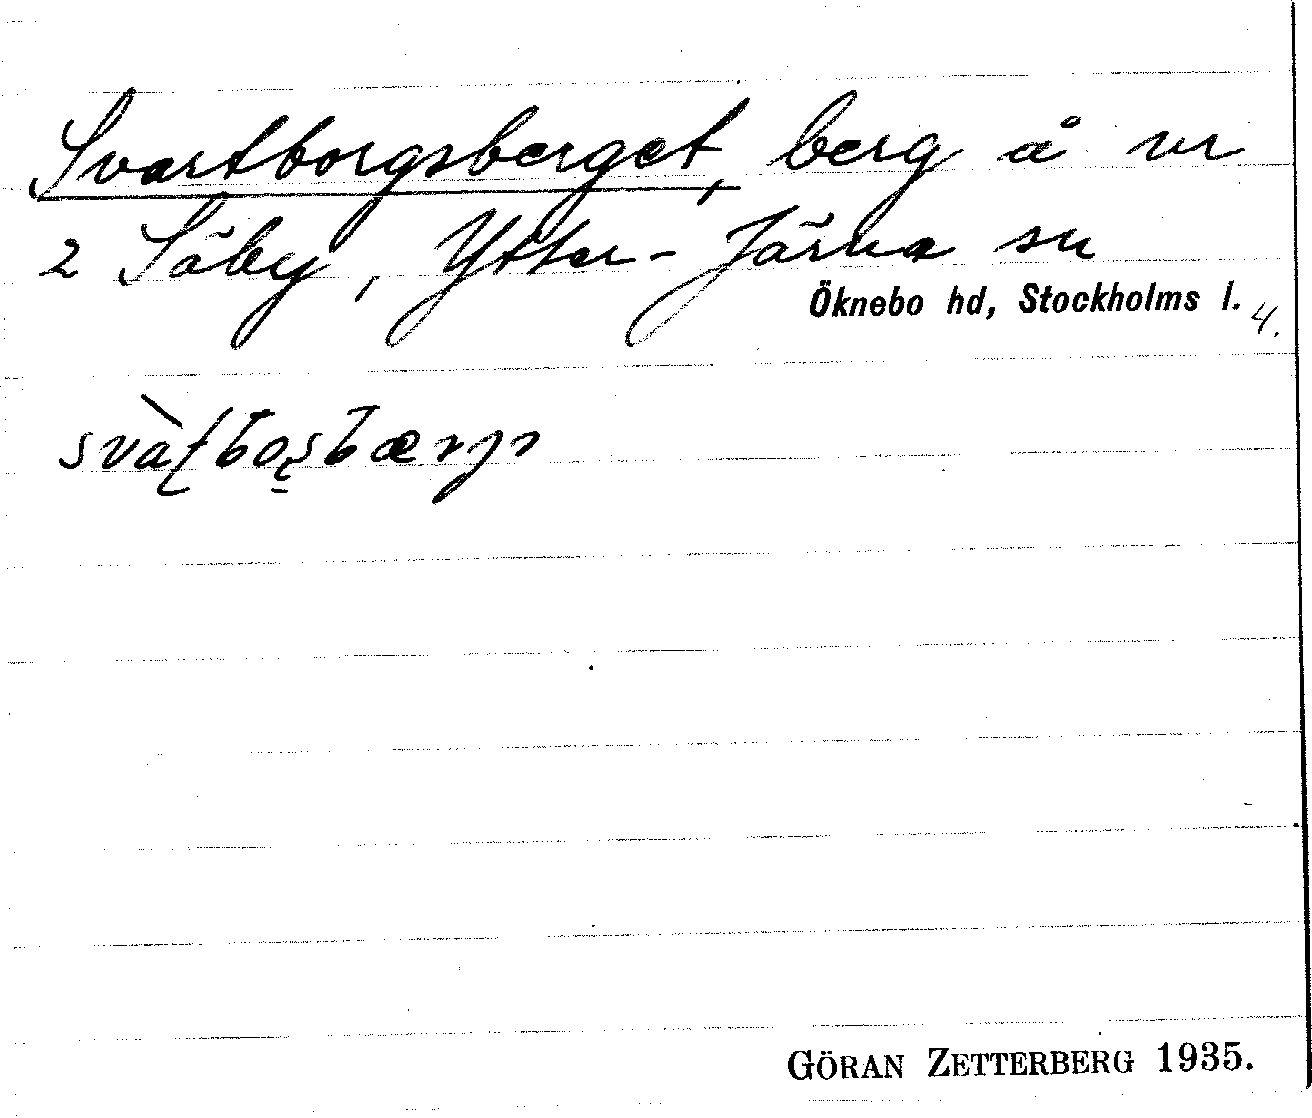 Svartborgsberget, berg å vr
2 Säby, Ytter-Järna sn
Öknebo hd, Stockholms l. 4.
GÖRAN ZETTERBERG 1935.